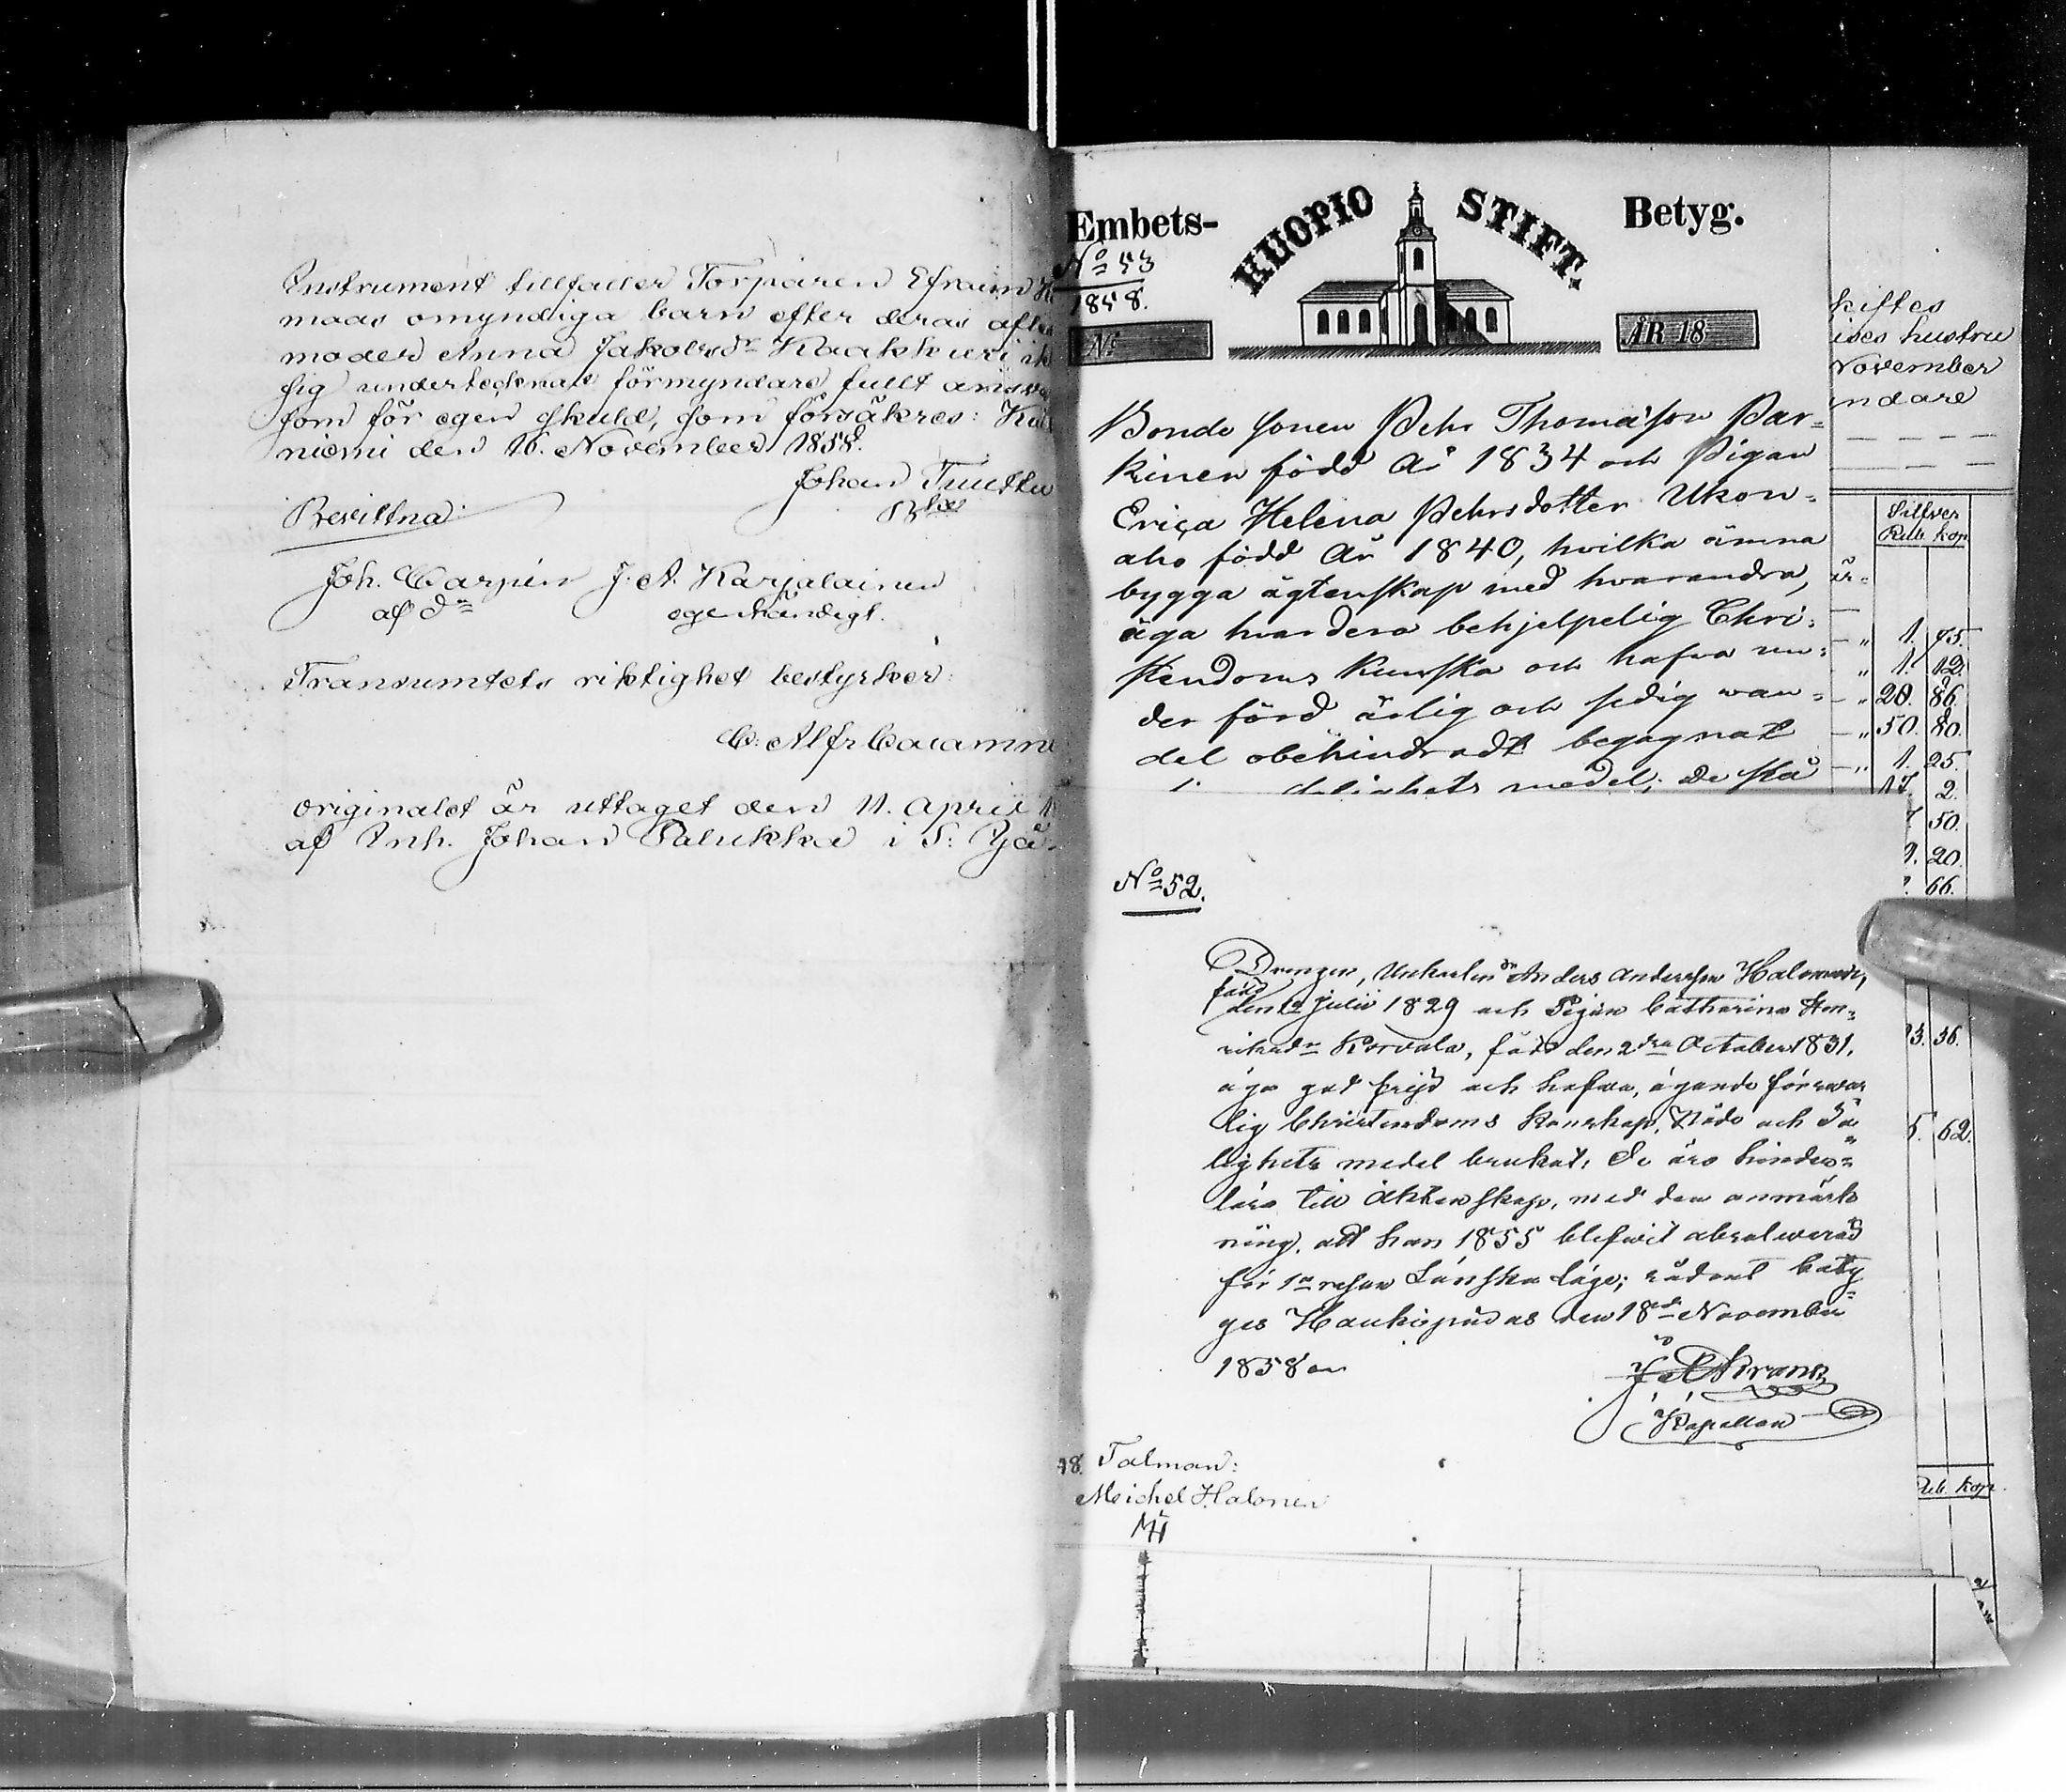 Instrument tillfaller Torparen Efraim
maas omyndiga barn efter deras
moder Anna Jakobsdr Kaakkuri
sig undertecknad förmyndare fullt
som för egen skuld, som försäkres:
niemi den 16. November 1858.
Johan
Bevittna:
Joh. Carpén J. A. Karjalainen
af d:o egenhändigt.
Transumtets riktighet bestyrker:
C. Alfr
originalet är uttaget den 11. April
af Inh. Johan Palukka i S:
Embets- KUOPIO STIFT. Betyg.
No 53
1858.
No ÅR 18
Bonde sonen Pehr Thomasson Par-
kinen född År 1834 och Pigan
Erica Helena Pehrsdotter Ukon-
aho född År 1840, hvilka ämna
bygga ägtenskap med hvarandra,
äga hvardera behjelpelig Chri-
stendoms kunskap och hafva un-
der förd ärlig och sedig wan-
del obehindradt begagnat
medel; de stå
kiftes
ises hustru
November
ndare
Silfver
Rub. kop
är-
" 1. 75.
" 1. 12.
" 20. 86.
" 50. 80.
" 1. 25.
17. 2.
50.
20.
66.
3. 36.
5. 62.
Rub. kop.
No 52.
Drengen, Anders Andersson Halonen,
född
den Julii 1829 och Pigan Catharina Hen-
riksdr Korvala, född den 2dra October 1831,
äga god frejd och hafva, ägande förswar
lig Christendoms kunskap, Nåde och Sa
lighets medel brukat. De äro hinder-
lösa till äktenskap, med den anmärk
ning, att han 1855 blifwit absolwerad
för 1a resan Lönska läge; sådant bety
ges Haukipudas den 18de November
1858
Kapellan
48. Talman:
Meichel Halonen
MH